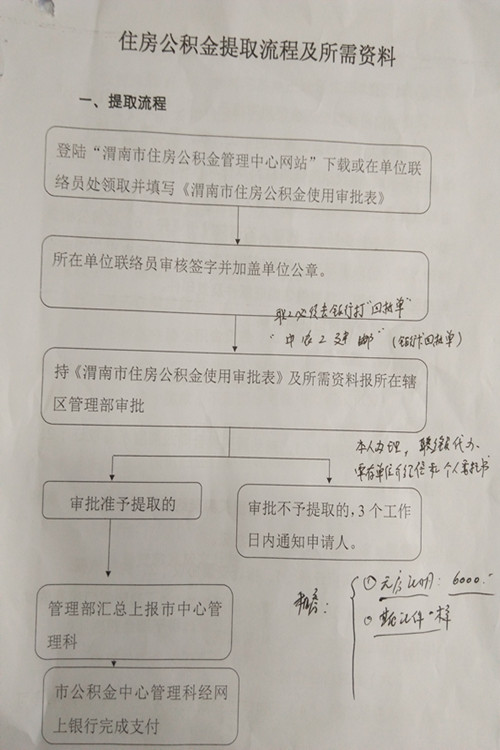 住房公积金提取流程及所需资料
一、提取流程
登陆“渭南市住房公积金管理中心网站”下载或在单位联
络员处领取并填写《渭南市住房公积金使用审批表》
所在单位联络员审核签字并加盖单位公章。
职工必须去银行打“回执单”
“中农工建邮”(银行卡回执单)
持《渭南市住房公积金使用审批表》及所需资料报所在辖
区管理部审批
本人办理,
代办、
要有单位介绍信和个人委托书
审批准予提取的
审批不予提取的,3个工作
日内通知申请人。
管理部汇总上报市中心管
理科
租房:
①无房证明:6000.
证件一样
市公积金中心管理科经网
上银行完成支付